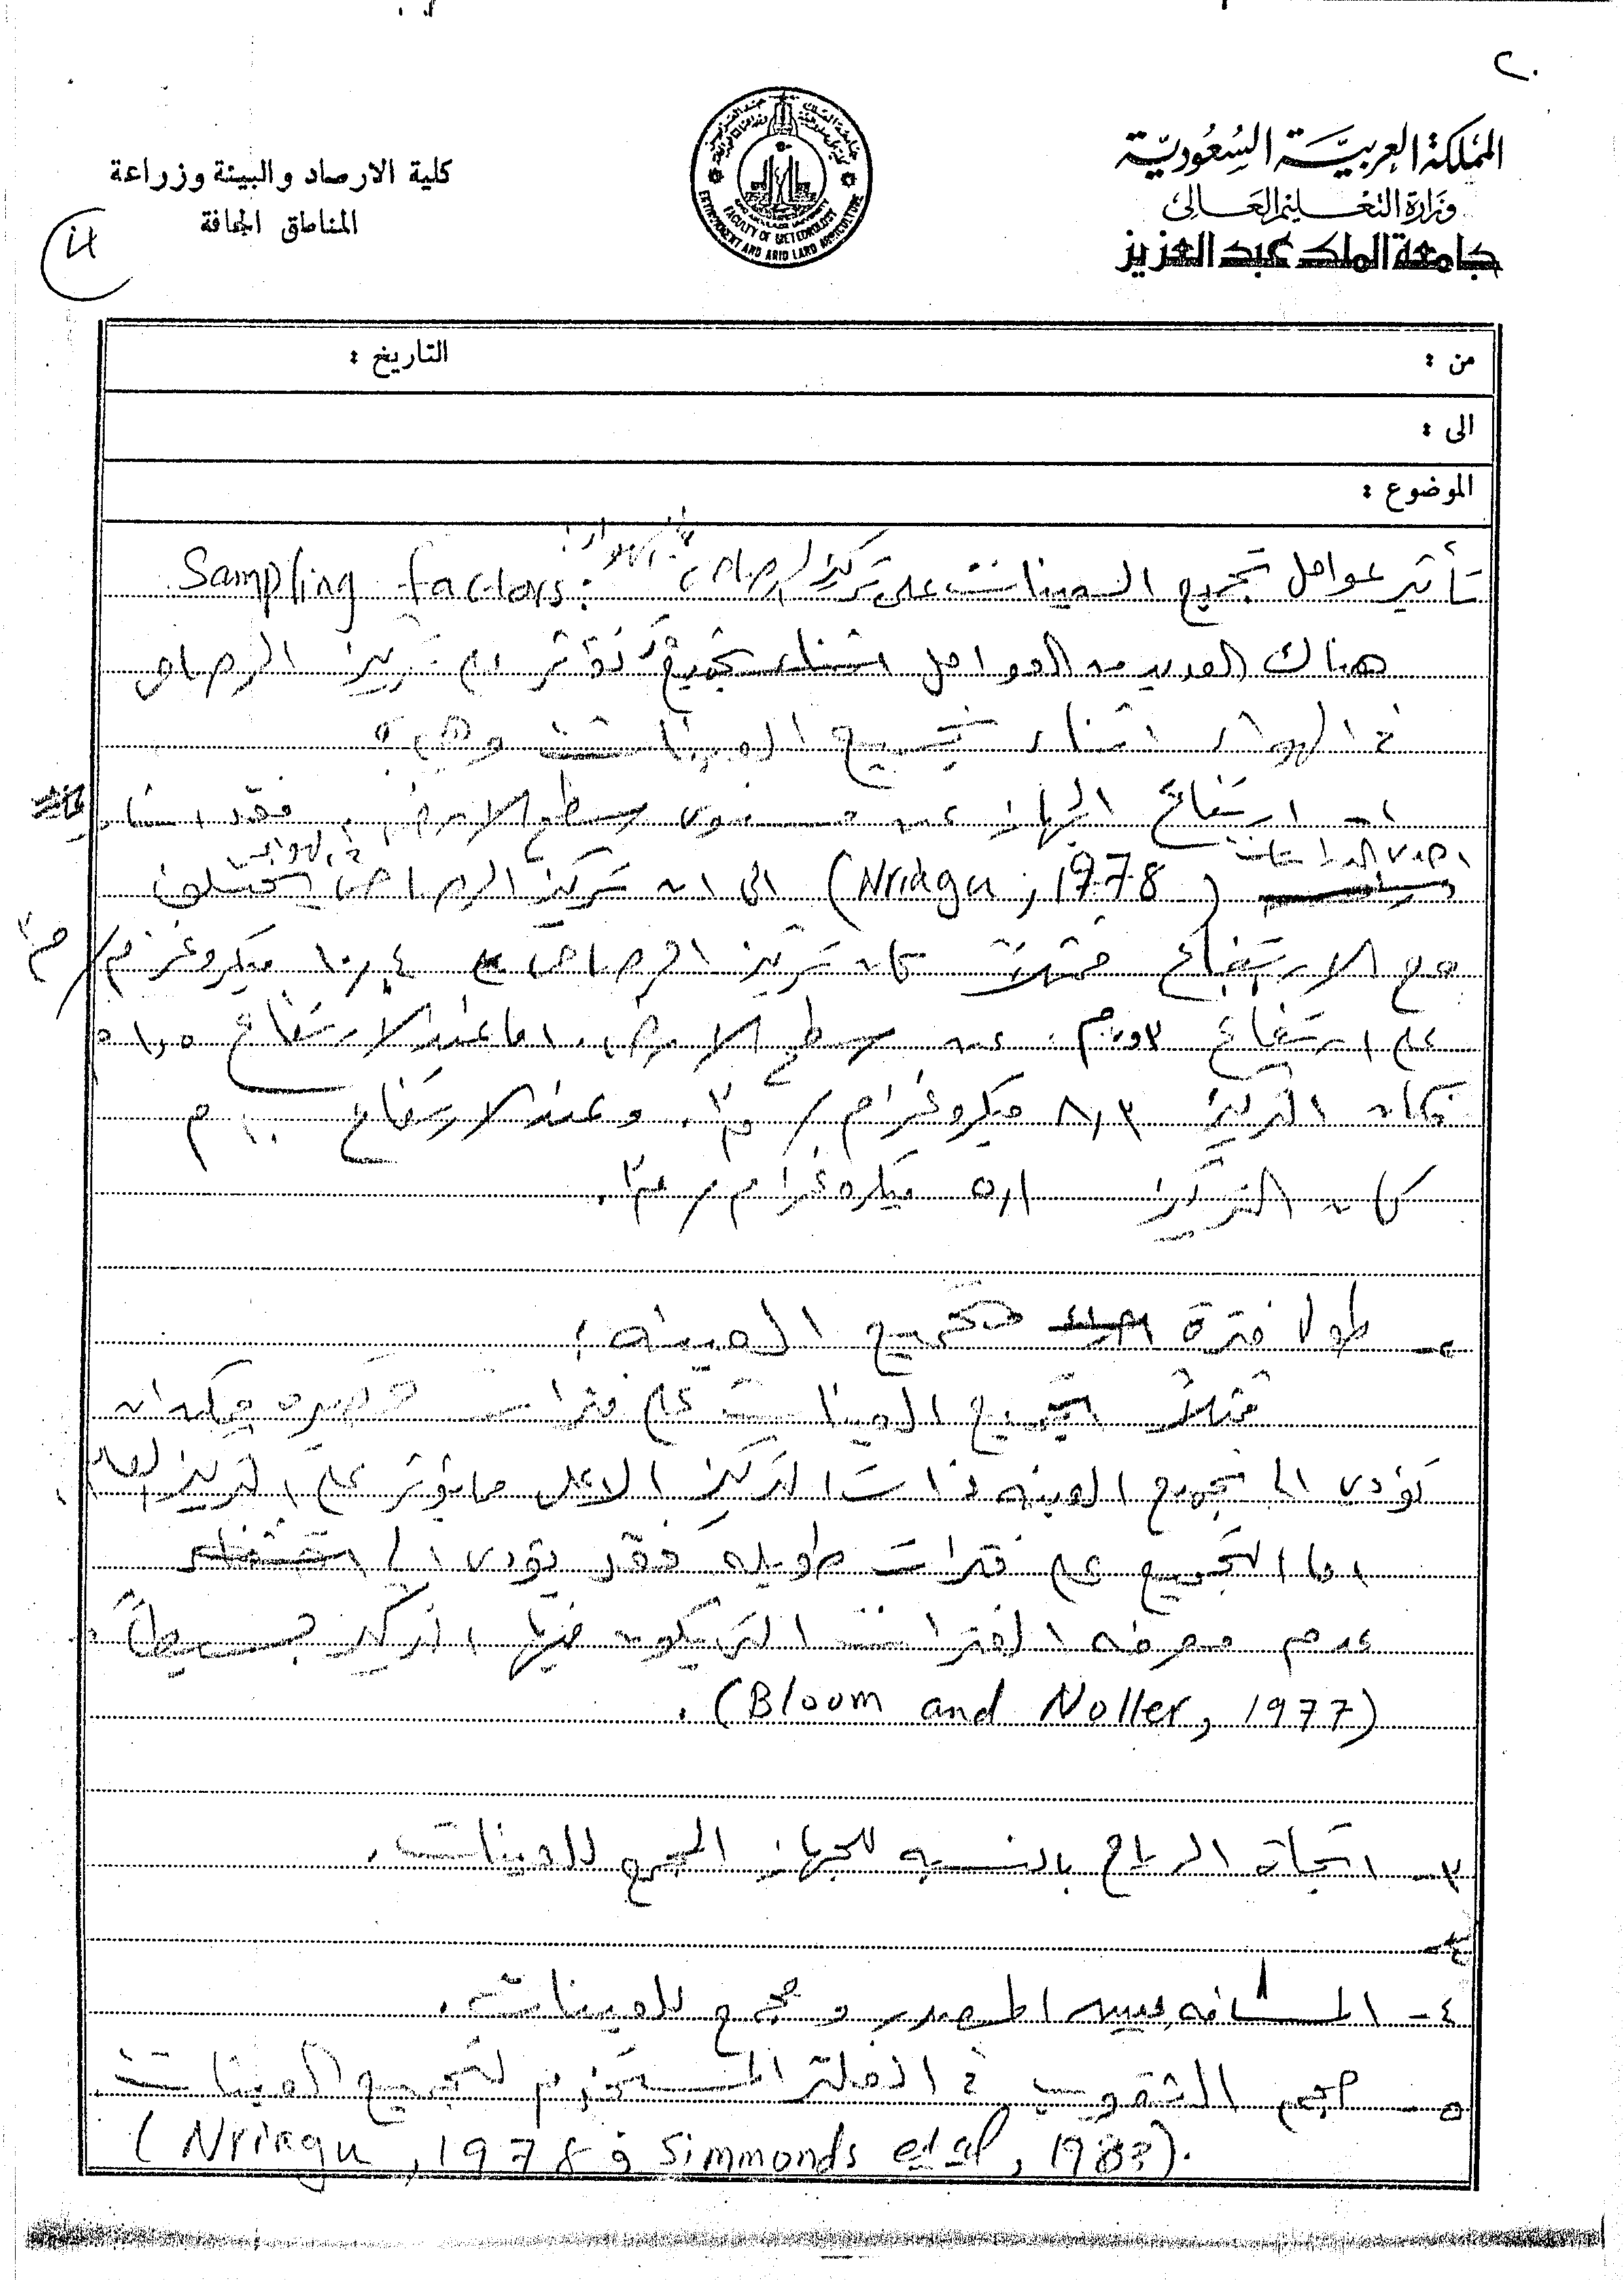 ٢٠
المملكة العربية السعودية
وزارة التعليم العالي
جامعة الملك عبد العزيز
كلية الارصاد والبيئة وزراعة
المناطق الجافة
FACULTY OF METEOROLOGY
ENVIRONMENT AND ARID LAND AGRICULTURE
من :
التاريخ :
الى :
الموضوع :
تأثير عوامل تجميع العينات على تركيز الرصاص في الهواء : Sampling factors
هناك العديد من العوامل تؤثر على تركيز الرصاص
في الهواء اثناء تجميع العينات وهي :
١- ارتفاع الجهاز عن مستوى سطح الارض . فقد اشار
احدى الدراسات (Nriagu , 1978) الى ان تركيز الرصاص في الهواء
مع الارتفاع فمثلاً كان تركيز الرصاص ١٠٫٤ ميكروغرام / م٣
على ارتفاع عن سطح الارض ، اما عند الارتفاع م
فكان التركيز ٨٫٣ ميكروغرام / م٣ . وعند الارتفاع ١٠ م
كان التركيز ٥٫١ ميكروغرام / م٣ .
٢- طول فترة تجميع العينه :
فمثلاً تجميع العينات على فترات قصيره يمكن ان
تؤدى الى تجميع العينه ذات التركيز الاعلى مما يؤثر على التركيز
اما التجميع على فترات طويله فقد يؤدى الى
عدم معرفه الفترات التي يكون فيها التركيز بسيطاً
(Bloom and Noller, 1977) .
٣- اتجاه الرياح بالنسبه للجهاز المجمع للعينات .
٤- المسافه بين المصدر و مجمع العينات .
٥- حجم الثقوب في الفلتر المستخدم لتجميع العينات
(Nriagu , 1978 ; Simmonds et al , 1983).